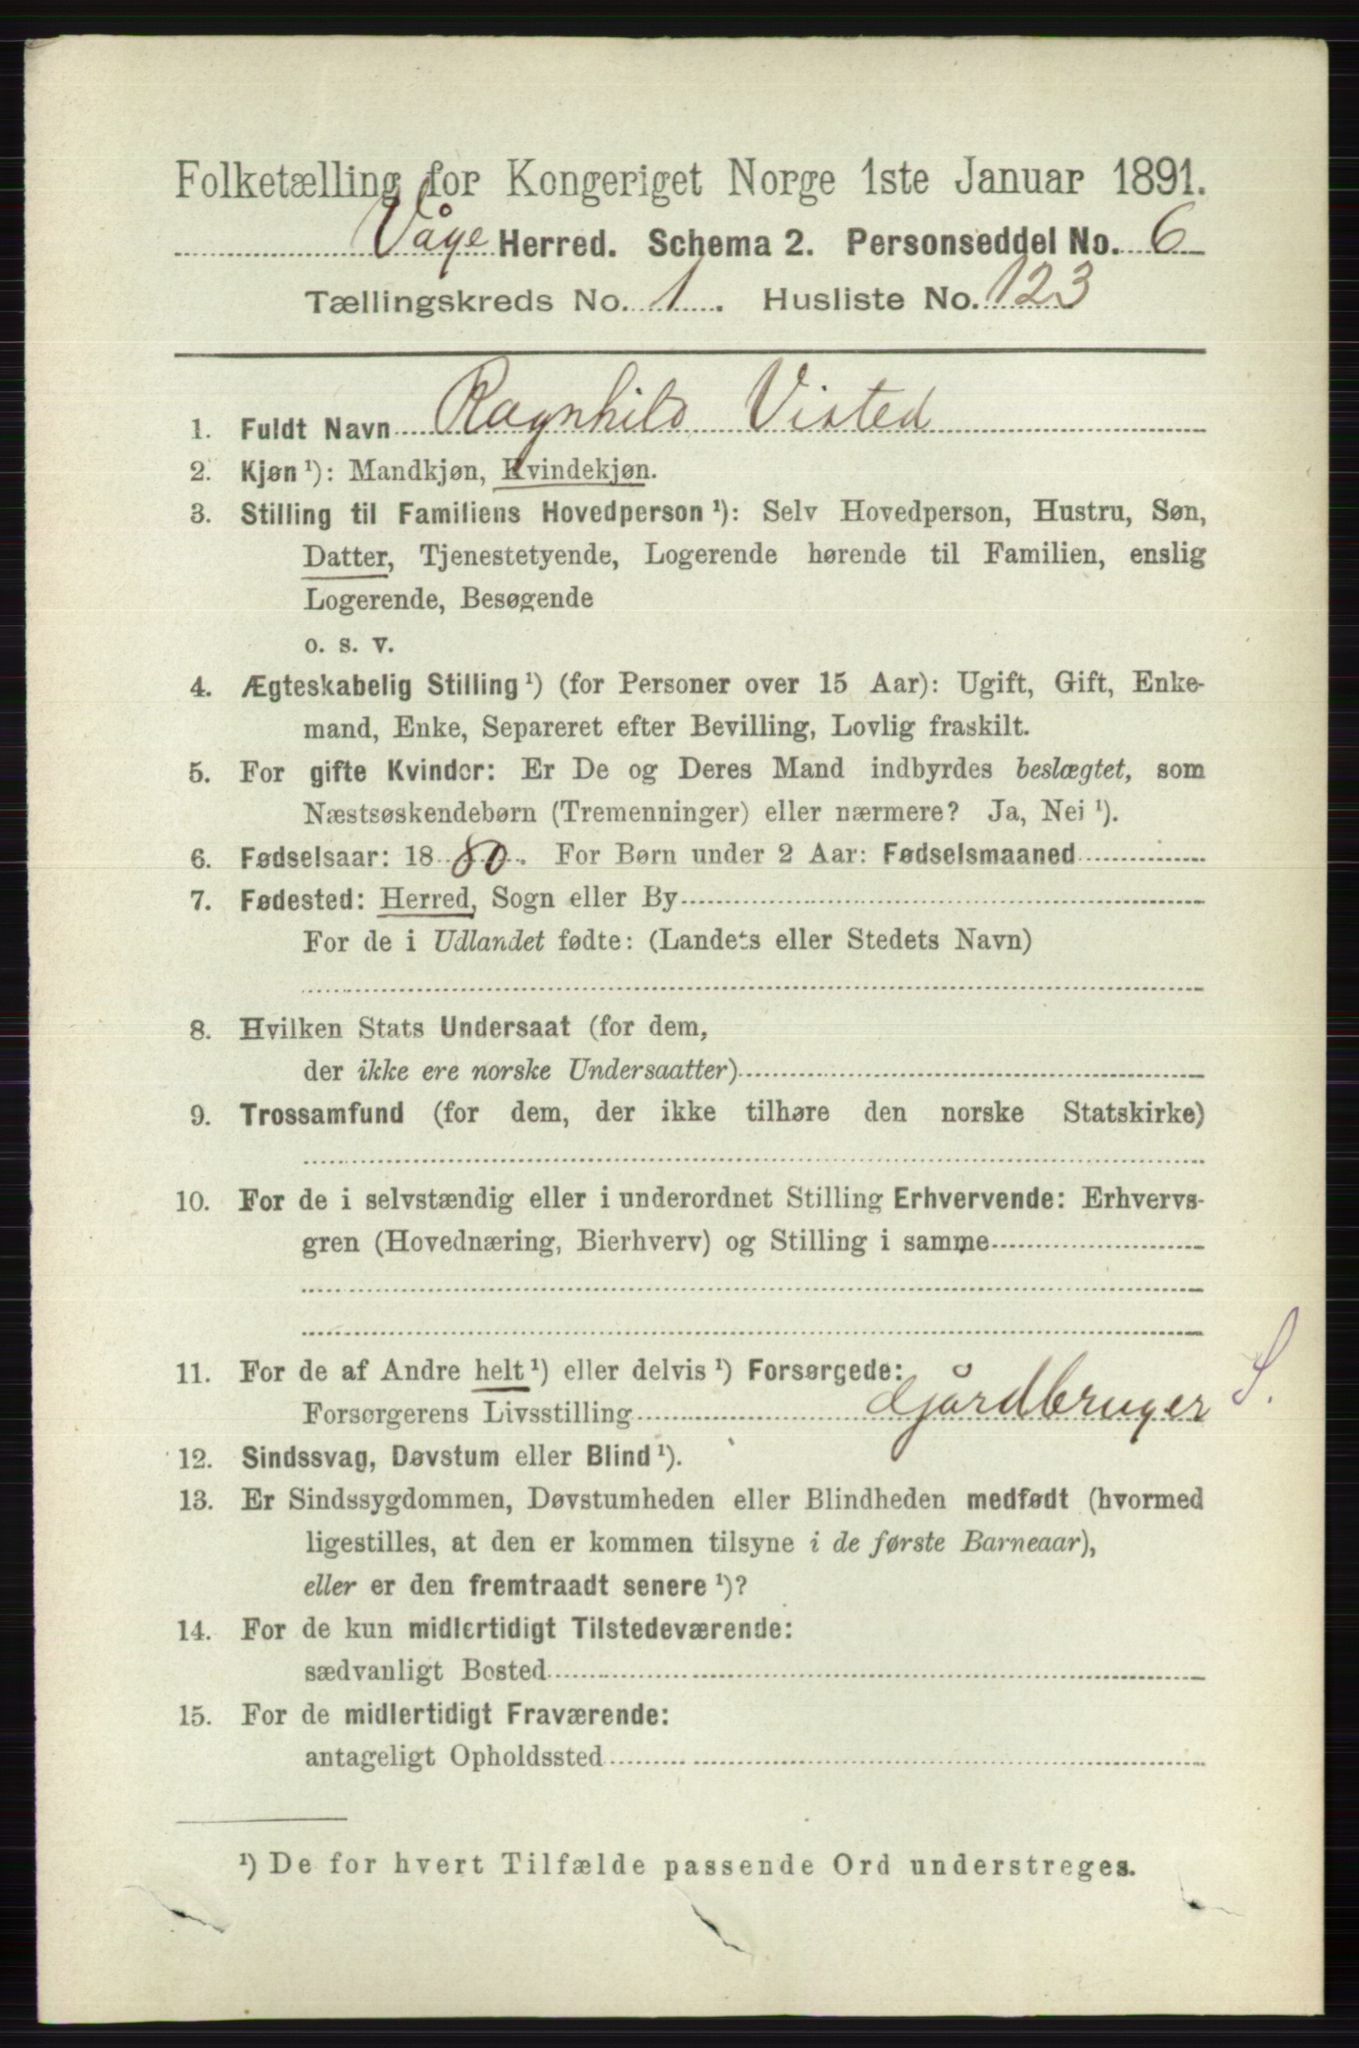 Folketælling for Kongeriget Norge 1ste Januar 1891.
Våge Herred. Schema 2. Personseddel No. 6
Tællingskreds No. 1. Husliste No. 123
1. Fuldt Navn Ragnhild Visted
2. Kjøn ¹): Mandkjøn, Kvindekjøn.
3. Stilling til Familiens Hovedperson ¹): Selv Hovedperson, Hustru, Søn,
Datter, Tjenestetyende, Logerende hørende til Familien, enslig
Logerende, Besøgende
o. s. v.
4. Ægteskabelig Stilling ¹) (for Personer over 15 Aar): Ugift, Gift, Enke-
mand, Enke, Separeret efter Bevilling, Lovlig fraskilt.
5. For gifte Kvinder: Er De og Deres Mand indbyrdes beslægtet, som
Næstsøskendebørn (Tremenninger) eller nærmere? Ja, Nei ¹).
6. Fødselsaar: 1880. For Børn under 2 Aar: Fødselsmaaned
7. Fødested: Herred, Sogn eller By
For de i Udlandet fødte: (Landets eller Stedets Navn)
8. Hvilken Stats Undersaat (for dem,
der ikke ere norske Undersaatter)
9. Trossamfund (for dem, der ikke tilhøre den norske Statskirke)
10. For de i selvstændig eller i underordnet Stilling Erhvervende: Erhvervs-
gren (Hovednæring, Bierhverv) og Stilling i samme
11. For de af Andre helt ¹) eller delvis ¹) Forsørgede:
Forsørgerens Livsstilling Gjårdbruger S.
12. Sindssvag, Døvstum eller Blind ¹).
13. Er Sindssygdommen, Døvstumheden eller Blindheden medfødt (hvormed
ligestilles, at den er kommen tilsyne i de første Barneaar),
eller er den fremtraadt senere ¹)?
14. For de kun midlertidigt Tilstedeværende:
sædvanligt Bosted
15. For de midlertidigt Fraværende:
antageligt Opholdssted
¹) De for hvert Tilfælde passende Ord understreges.